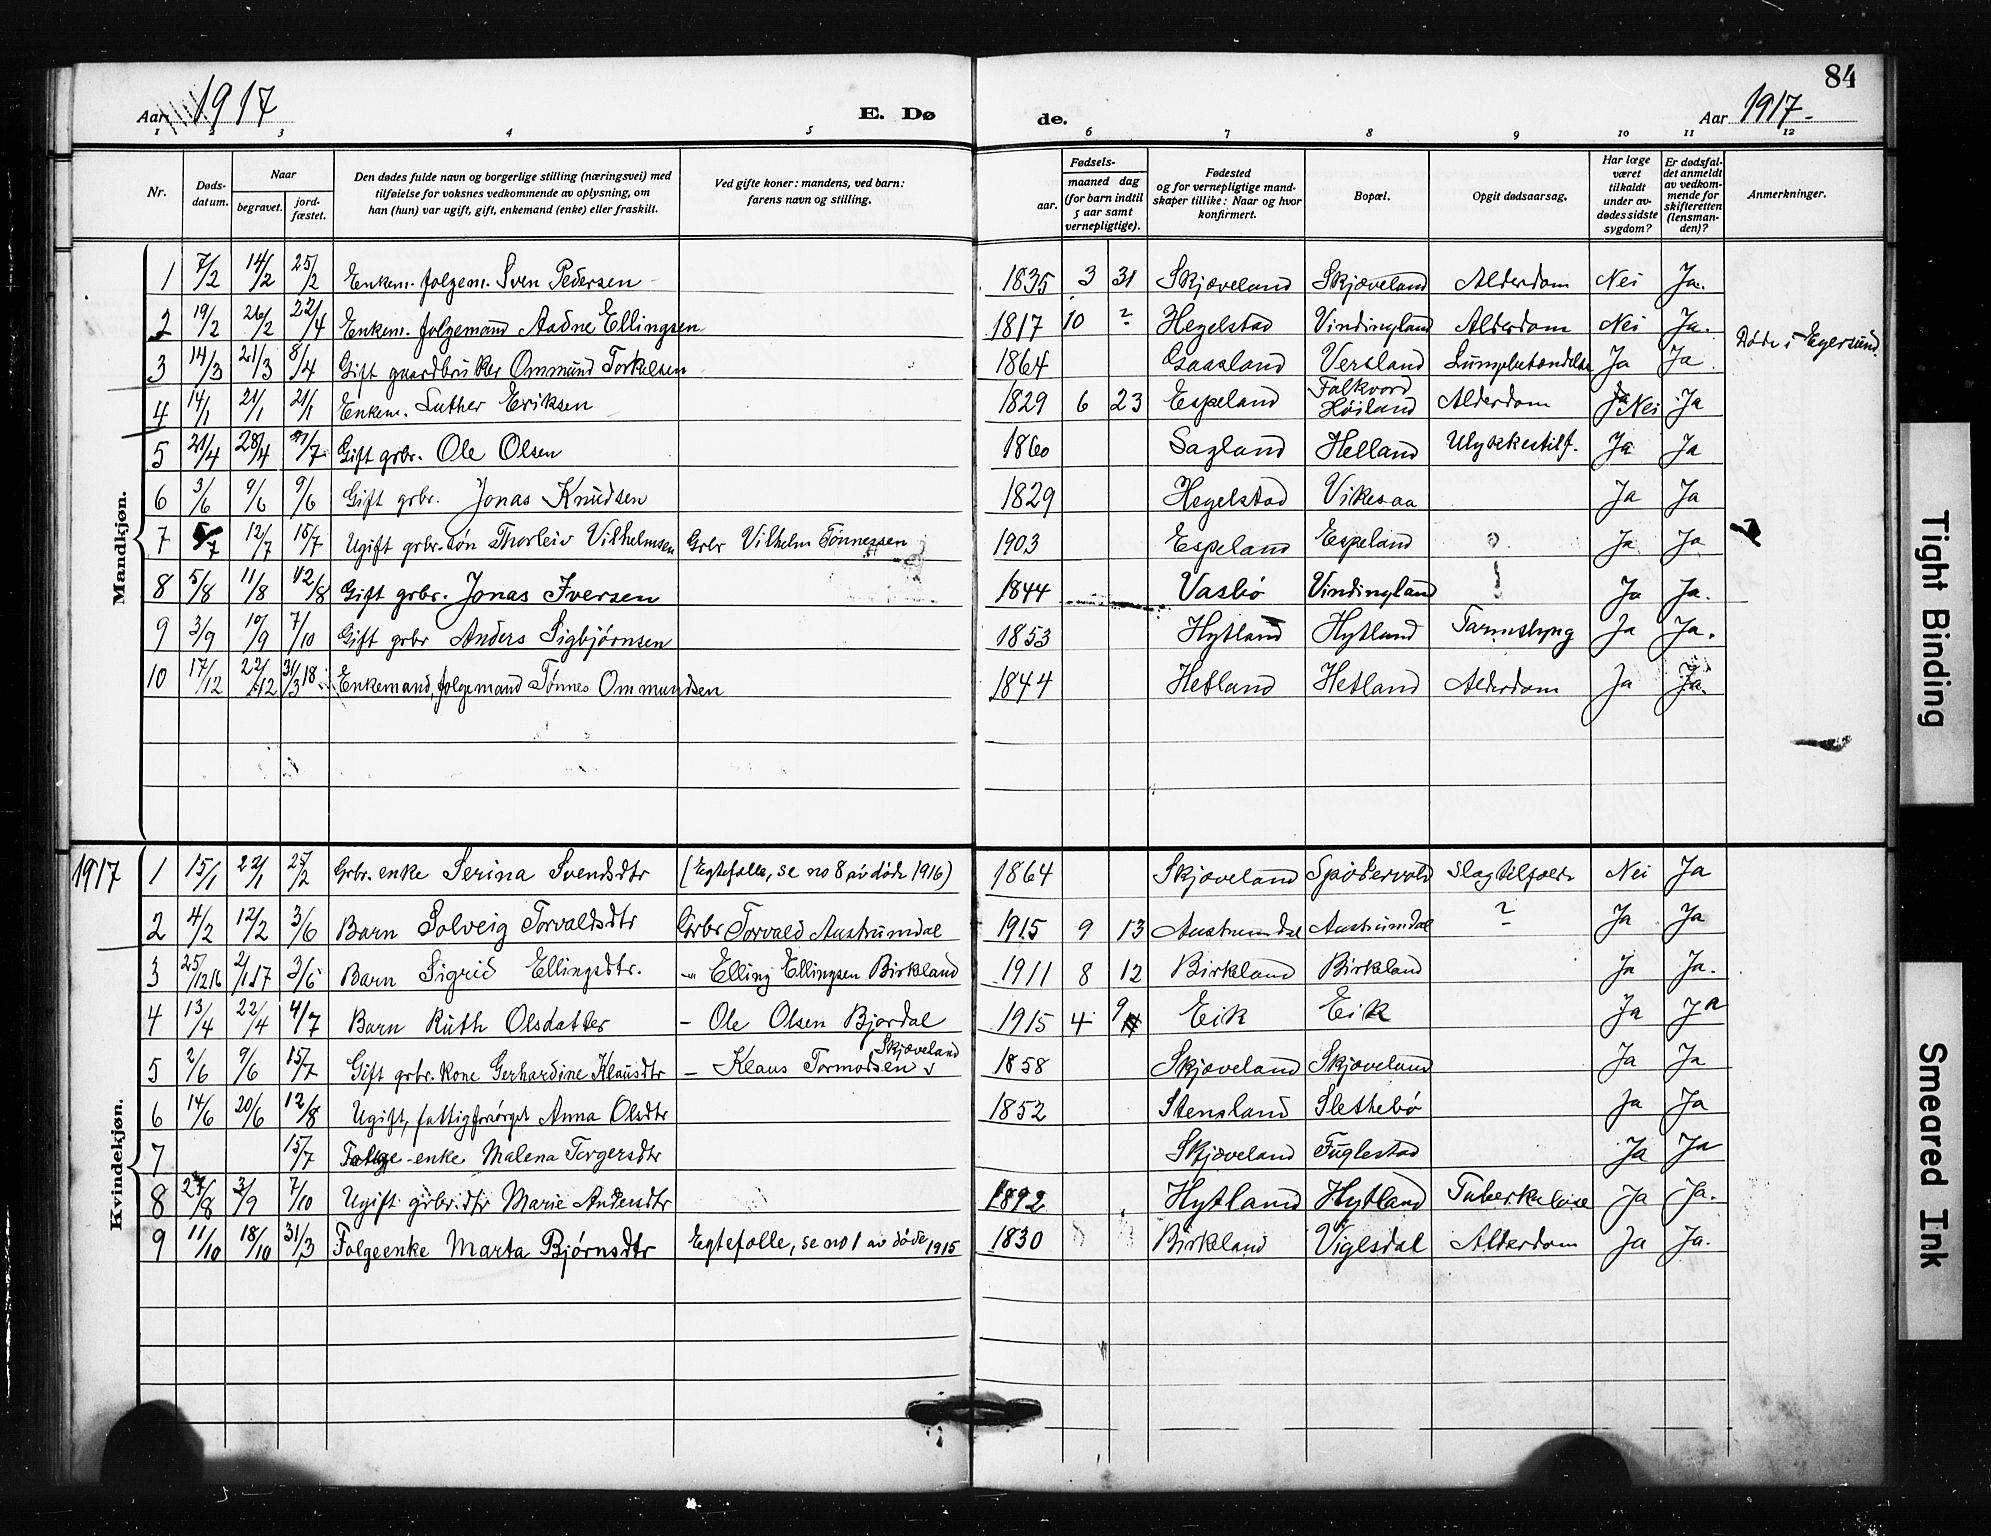 84
Aar 1917 E. Dø de. Aar 1917.
1 2 3 4 5 6 7 8 9 10 11 12
Nr. Døds-datum. Naar begravet. jord-fæstet. Den dødes fulde navn og borgerlige stilling (næringsvei) med tilføielse for voksnes vedkommende av oplysning, om han (hun) var ugift, gift, enkemand (enke) eller fraskilt. Ved gifte koner: mandens, ved barn: farens navn og stilling. Fødsels- aar. maaned dag (for barn indtil 5 aar samt vernepligtige). Fødested og for vernepligtige mand-skaper tillike: Naar og hvor konfirmert. Bopæl. Opgit dødsaarsag. Har læge været tilkaldt under av-dødes sidste sygdom? Er dødsfal-det anmeldt av vedkom-mende for skifteretten (lensman-den)? Anmerkninger.
Mandkjøn.
1 7/2 14/2 25/2 Enkem. folgem. Sven Pedersen 1835 3 31 Skjæveland Skjæveland Alderdom Nei Ja.
2 19/2 26/2 22/4 Enkem. folgemand Aadne Ellingsen 1817 10 ? Hegelstad Vindingland Alderdom Nei Ja.
3 14/3 21/3 8/4 Gift gaardbruker Ommund Torkelsen 1864 Gaasland Versland Lungebetændelse Ja Ja. Døde i Egersund.
4 14/1 21/1 21/1 Enkem. Luther Eriksen 1829 6 23 Espeland Folkvord Høiland Alderdom Nei Ja
5 21/4 28/4 /7 Gift grbr. Ole Olsen 1860 Sagland Helland Ulykkestilf. Ja Ja
6 3/6 9/6 9/6 Gift grbr. Jonas Knudsen 1829 Hegelstad Vikesaa Ja Ja
7 5/7 12/7 15/7 Ugift grbr.søn Thorleiv Vilhelmsen Grbr Vilhelm Tønnessen 1903 Espeland Espeland Ja Ja
8 5/8 11/8 12/8 Gift grbr. Jonas Iversen 1844 Vasbø Vindingland Ja Ja.
9 3/9 10/9 7/10 Gift grbr Anders Sigbjørnsen 1853 Hytland Hytland Tarmslyng Ja Ja.
10 17/12 22/12 31/3 18. Enkemand, folgemand Tønnes Ommundsen 1844 Hetland Hetland Alderdom Ja Ja.
1917
Kvindekjøn.
1 15/1 22/1 25/2 Grbr. enke Serina Svendsdtr (Egtefolle, se no 8 av døde 1916) 1864 Skjæveland Spødervold Slagtilfælde Nei Ja
2 4/2 12/2 3/6 Barn Solveig Torvaldsdtr Grbr Torvald Austrumdal 1915 9 13 Austrumdal Austrumdal ? Ja Ja
3 25/12 16 2/1 17 3/6 Barn Sigrid Ellingsdtr. -"- Elling Ellingsen Birkland 1911 8 12 Birkland Birkeland Ja Ja.
4 13/4 22/4 4/7 Barn Ruth Olsdatter - Ole Olsen Bjordal 1915 4 9 Eik Eik Ja Ja
5 2/6 9/6 15/7 Gift grbr. kone Gerhardine Klausdtr - Klaus Tormodsen Skjæveland 1858 Skjæveland Skjæveland Ja Ja
6 14/6 20/6 12/8 Ugift, fattigforsørget Anna Olsdtr 1852 Stensland Slettebø Ja Ja
7 15/7 Folge-enke Malena Torgersdtr Skjæveland Fuglestad Ja Ja
8 27/8 3/9 7/10 Ugift grbr.dtr Marie Andersdtr 1892 Hytland Hytland Tuberkulose Ja Ja.
9 11/10 18/10 31/3 Folgeenke Marta Bjørnsdtr Egtefolle, se no 1 av døde 1915 1830 Birkeland Viglesdal Alderdom Ja Ja.
Tight Binding
Smeared Ink